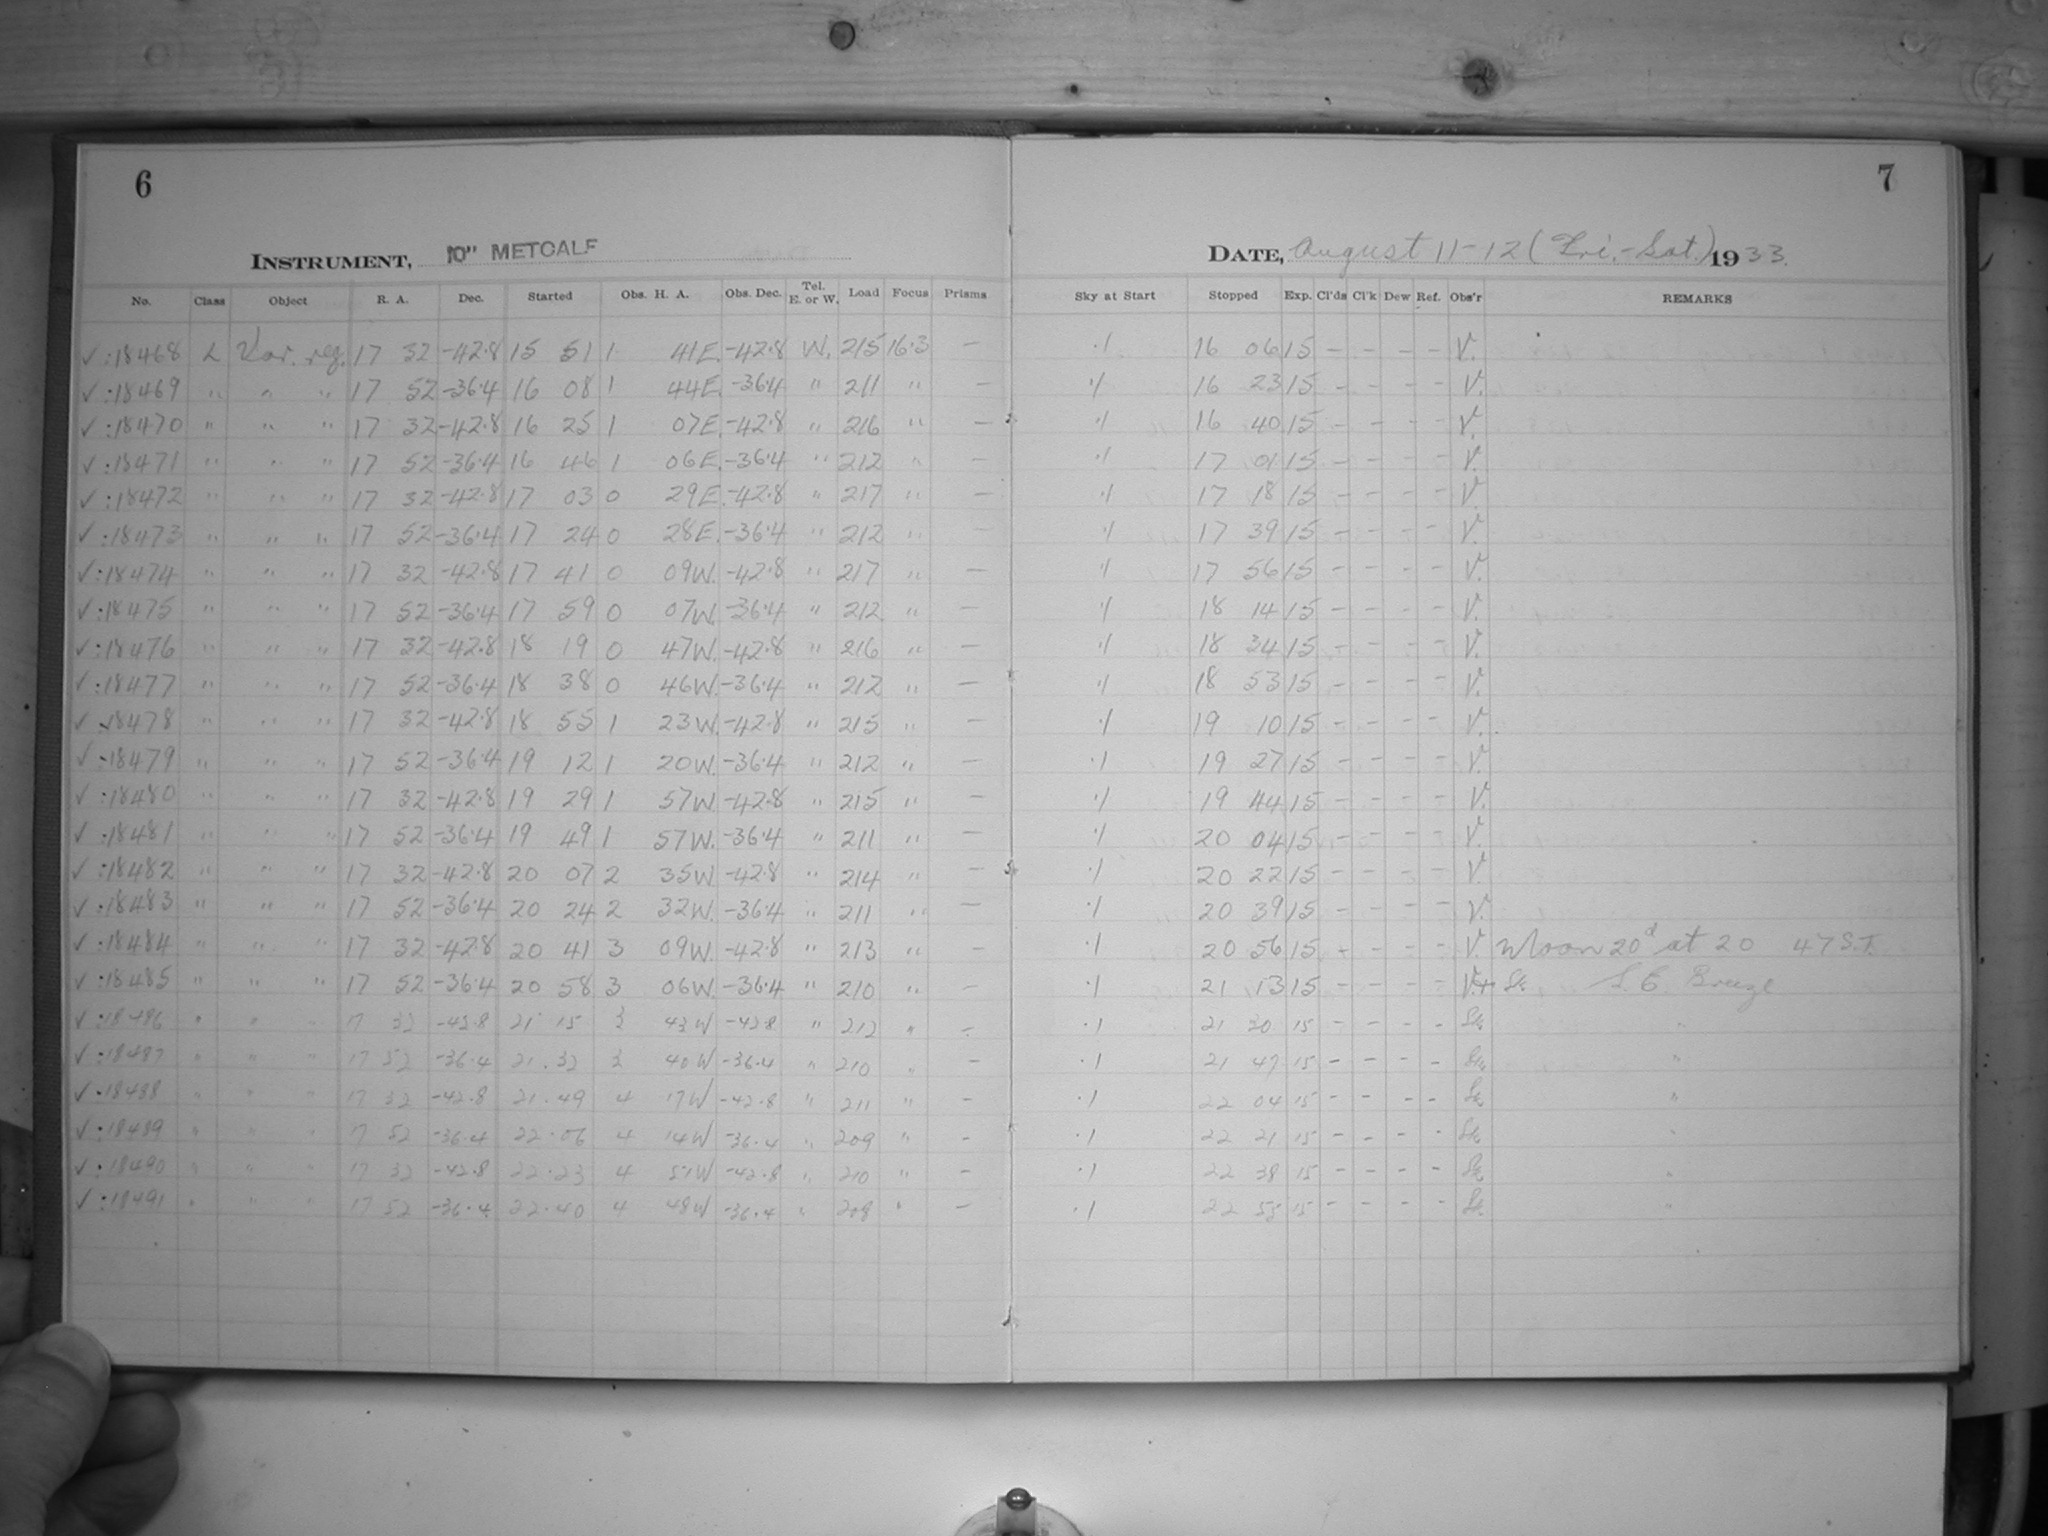 6
7
INSTRUMENT, 10" METCALF
DATE, August 11-12 (Fri.-Sat.) 1933.
No. Class Object R. A. Dec. Started Obs. H. A. Obs. Dec. Tel. E. or W. Load Focus Prisms Sky at Start Stopped Exp. Cl'ds Cl'k Dew Ref. Obs'r REMARKS
✓:18468 L Var. reg. 17 32 -42.8 15 51 1 41E. -42.8 W. 215 16.3 — .1 16 06 15 - - - - V.
✓:18469 " " " 17 52 -36.4 16 08 1 44E. -36.4 " 211 " — .1 16 23 15 - - - - V.
✓:18470 " " " 17 32 -42.8 16 25 1 07E. -42.8 " 216 " — .1 16 40 15 - - - - V.
✓:18471 " " " 17 52 -36.4 16 46 1 06E. -36.4 " 212 " — .1 17 01 15 - - - - V.
✓:18472 " " " 17 32 -42.8 17 03 0 29E. -42.8 " 217 " — .1 17 18 15 - - - - V.
✓:18473 " " " 17 52 -36.4 17 24 0 28E. -36.4 " 212 " — .1 17 39 15 - - - - V.
✓:18474 " " " 17 32 -42.8 17 41 0 09W. -42.8 " 217 " — .1 17 56 15 - - - - V.
✓:18475 " " " 17 52 -36.4 17 59 0 07W. -36.4 " 212 " — .1 18 14 15 - - - - V.
✓:18476 " " " 17 32 -42.8 18 19 0 47W. -42.8 " 216 " — .1 18 34 15 - - - - V.
✓:18477 " " " 17 52 -36.4 18 38 0 46W. -36.4 " 212 " — .1 18 53 15 - - - - V.
✓:18478 " " " 17 32 -42.8 18 55 1 23W. -42.8 " 215 " — .1 19 10 15 - - - - V.
✓:18479 " " " 17 52 -36.4 19 12 1 20W. -36.4 " 212 " — .1 19 27 15 - - - - V.
✓:18480 " " " 17 32 -42.8 19 29 1 57W. -42.8 " 215 " — .1 19 44 15 - - - - V.
✓:18481 " " " 17 52 -36.4 19 49 1 57W. -36.4 " 211 " — .1 20 04 15 - - - - V.
✓:18482 " " " 17 32 -42.8 20 07 2 35W. -42.8 " 214 " — .1 20 22 15 - - - - V.
✓:18483 " " " 17 52 -36.4 20 24 2 32W. -36.4 " 211 " — .1 20 39 15 - - - - V.
✓:18484 " " " 17 32 -42.8 20 41 3 09W. -42.8 " 213 " — .1 20 56 15 - - - - V. Moon 20d at 20 47 S.T.
✓:18485 " " " 17 52 -36.4 20 58 3 06W. -36.4 " 210 " — .1 21 13 15 - - - - V.+ St. S.E. Breeze
✓:18486 " " " 17 32 -42.8 21 15 3 43W -42.8 " 212 " — .1 21 30 15 - - - - St. "
✓:18487 " " " 17 52 -36.4 21.32 3 40W -36.4 " 210 " — .1 21 47 15 - - - - St. "
✓:18488 " " " 17 32 -42.8 21.49 4 17W -42.8 " 211 " — .1 22 04 15 - - - - St. "
✓:18489 " " " 17 52 -36.4 22.06 4 14W -36.4 " 209 " — .1 22 21 15 - - - - St. "
✓:18490 " " " 17 32 -42.8 22.23 4 51W -42.8 " 210 " — .1 22 38 15 - - - - St. "
✓:18491 " " " 17 52 -36.4 22.40 4 48W -36.4 " 208 " — .1 22 55 15 - - - - St. "